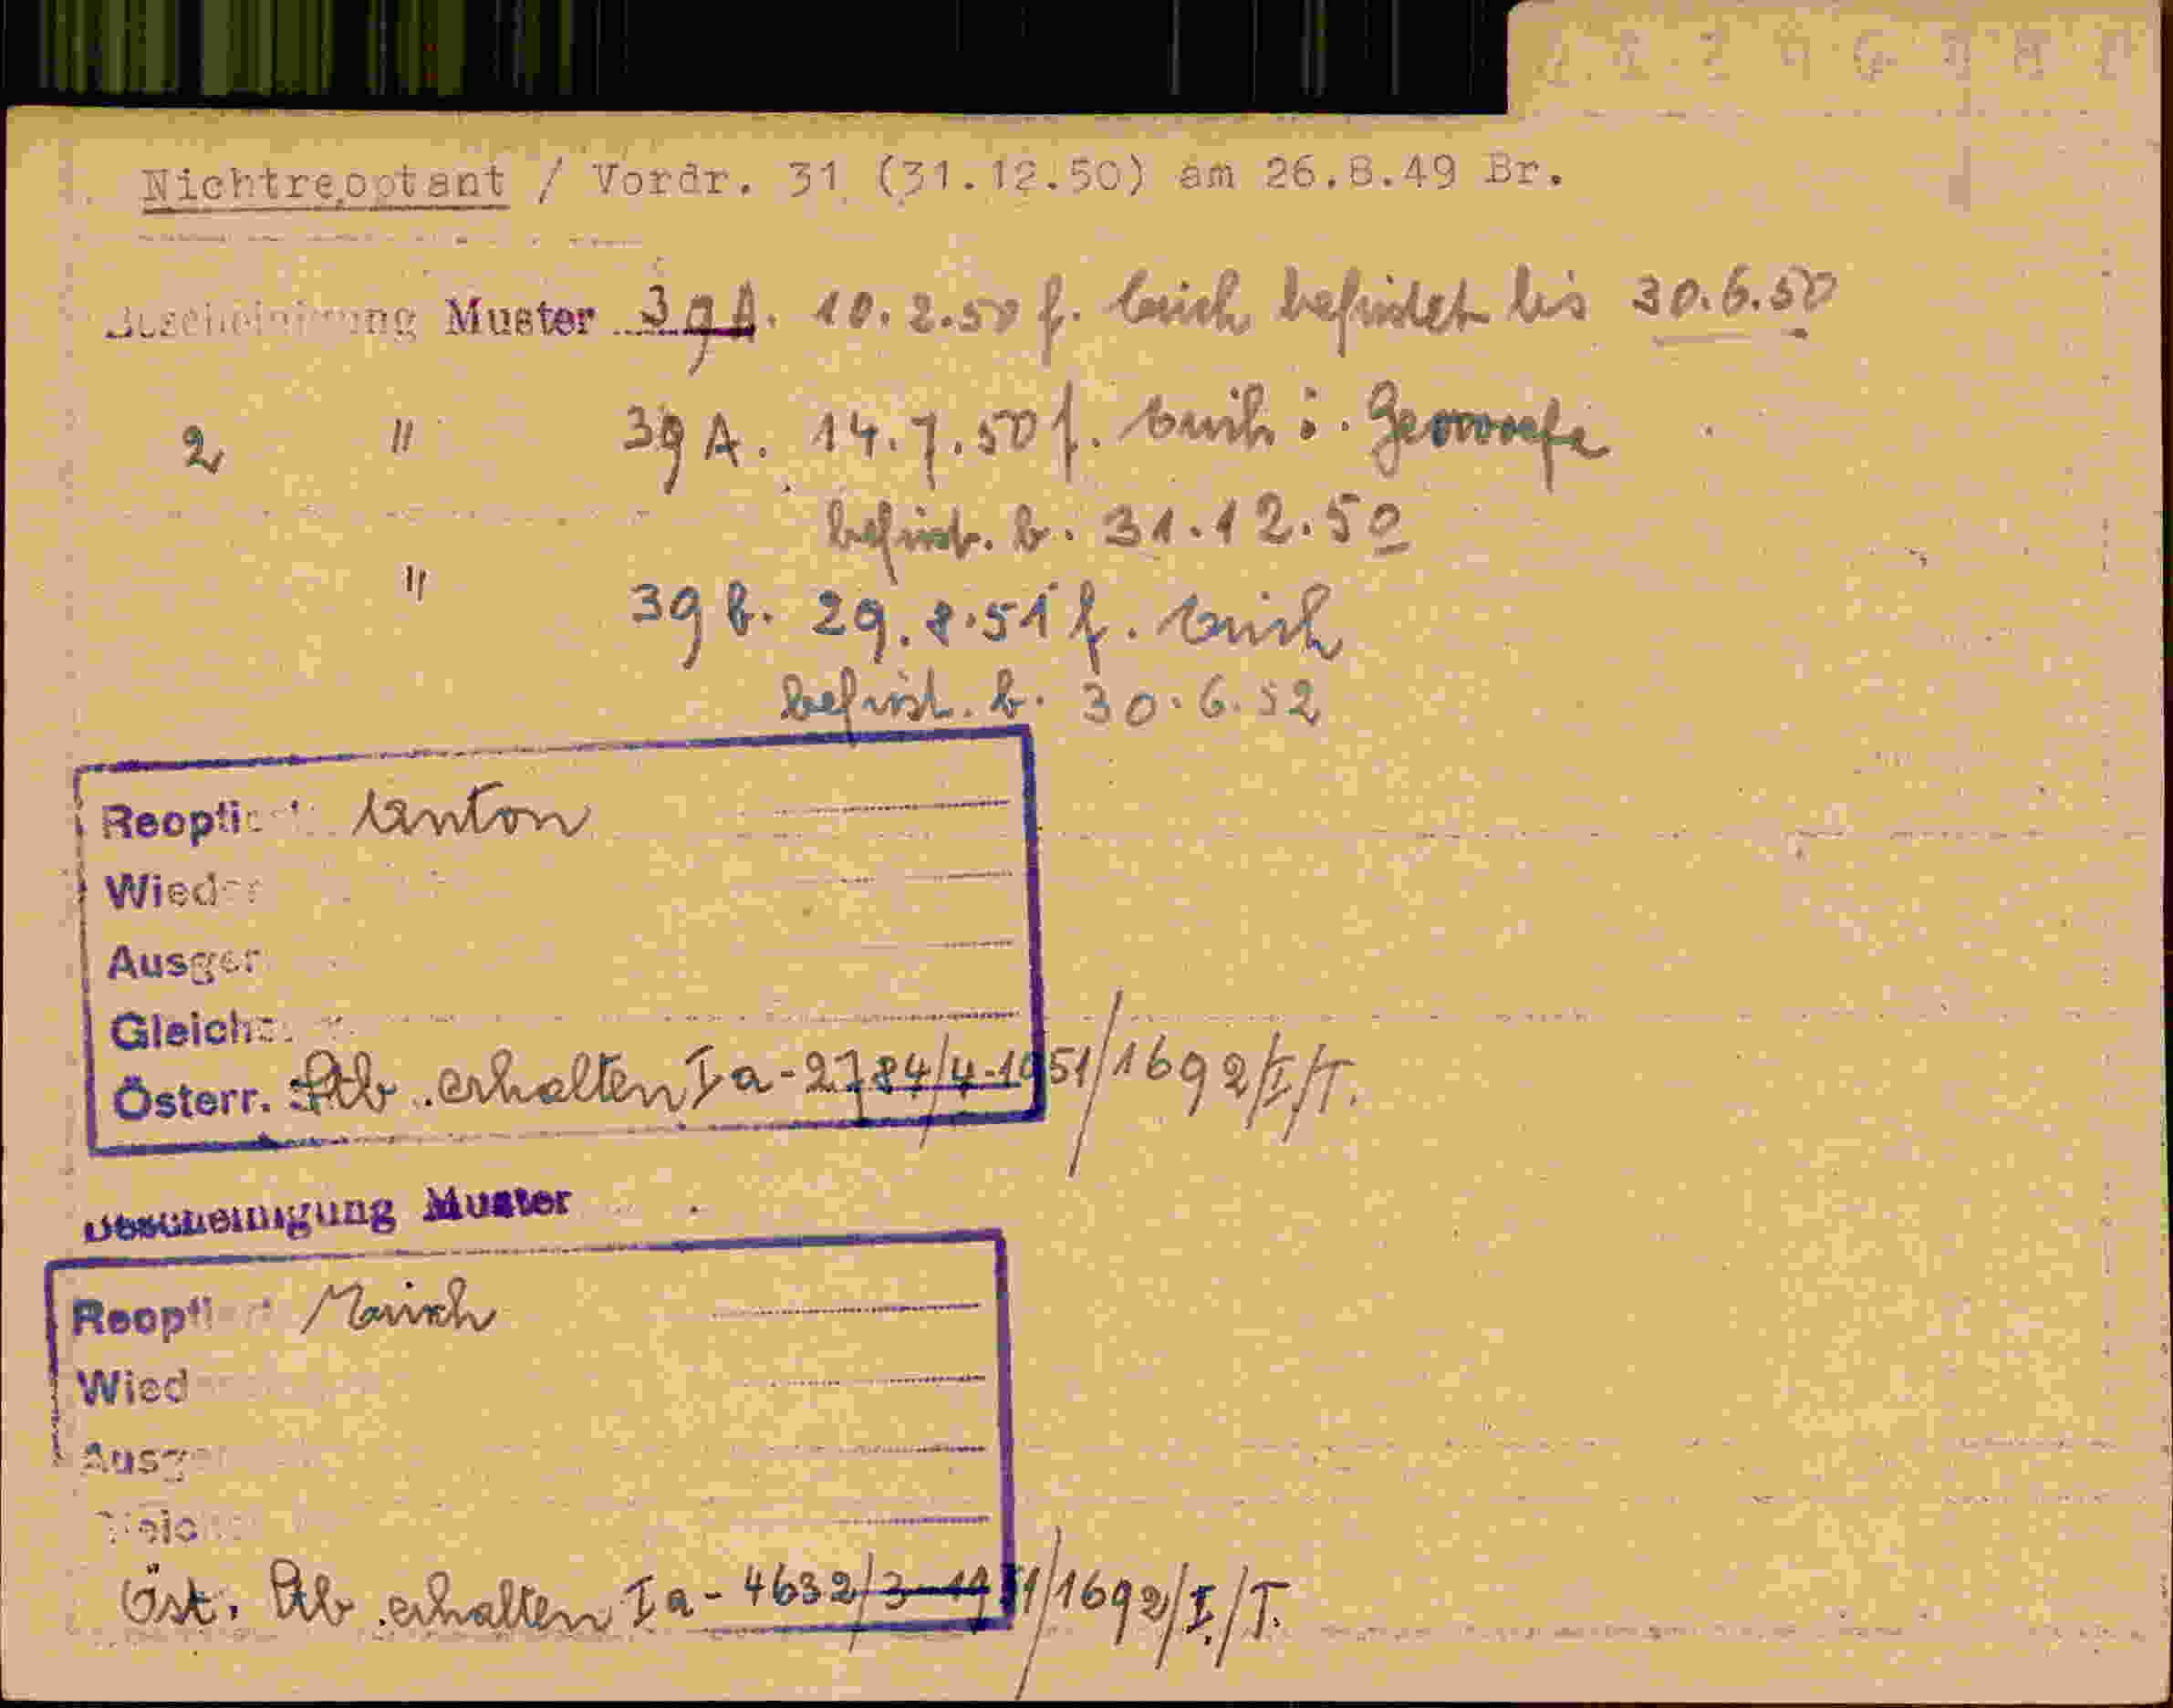 Nichtreoptant / Vordr. 31 (31.12.50) am 26.8.49 Br.
Bescheinigung Muster 39 A. 10.2.50 f. befristet bis 30.6.50
2 " 39 A. 14.7.50 f.
befrist. b. 31.12.50
" 39 b. 29.8.51 f.
befrist. b. 30.6.52
Reoptiert Anton
Wieder
Ausger
Gleichs.
Österr. Stb. erhalten Ia-2784/4-1951/1692/I/T.
Bescheinigung Muster
Reoptiert
Wied
Ausg
Gleic
Öst. Stb. erhalten Ia-4632/3-1951/1692/I/T.